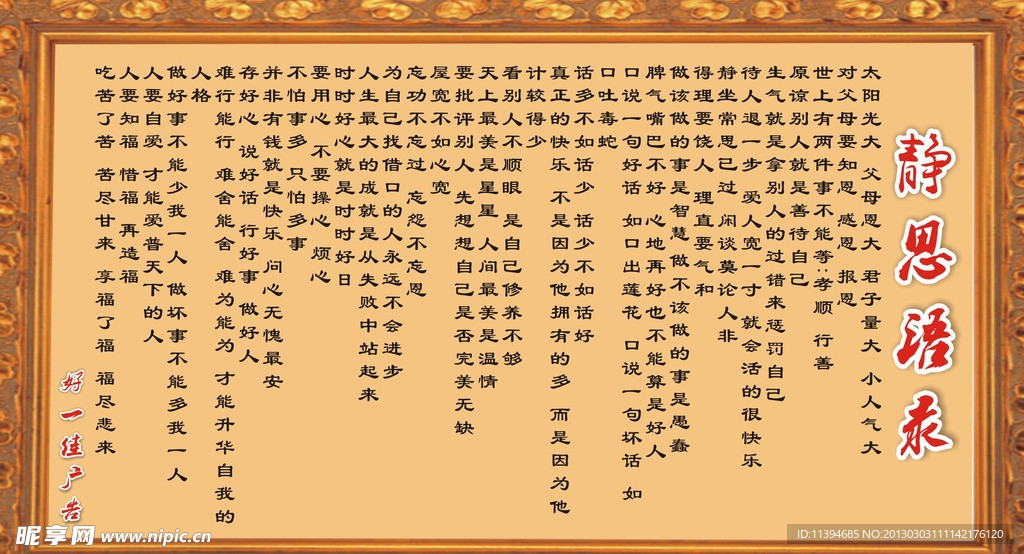 静思语录
太阳光大 父母恩大 君子量大 小人气大
对父母要知恩 感恩 报恩
世上有两件事不能等:孝顺 行善
原谅别人就是善待自己
生气就是拿别人的过错来惩罚自己
待人退一步 爱人宽一寸 就会活的很快乐
静坐常思已过 闲谈莫论人非
得理要饶人 理直要气和
做该做的事是智慧 做不该做的事是愚蠢
脾气嘴巴不好 心地再好也不能算是好人
口说一句好话 如口出莲花 口说一句坏话 如
口吐毒蛇
话多不如话少 话少不如话好
真正的快乐 不是因为他拥有的多 而是因为他
计较得少
看别人不顺眼 是自己修养不够
天上最美是星星 人间最美是温情
要批评别人 先想想自己是否完美无缺
屋宽不如心宽
忘功不忘过 忘怨不忘恩
为自己找借口的人永远不会进步
人生最大的成就是从失败中站起来
时时好心就是时时好日
要用心 不要操心 烦心
不怕事多 只怕多事
并非有钱就是快乐 问心无愧最安
存好心 说好话 行好事 做好人
难行能行 难舍能舍 难为能为 才能升华自我的
人格
做好事不能少我一人 做坏事不能多我一人
人要自爱 才能爱普天下的人
人要知福 惜福 再造福
吃苦了苦 苦尽甘来 享福了福 福尽悲来
好一佳广告
昵享网 www.nipic.cn
ID:11394685 NO:20130303111142176120